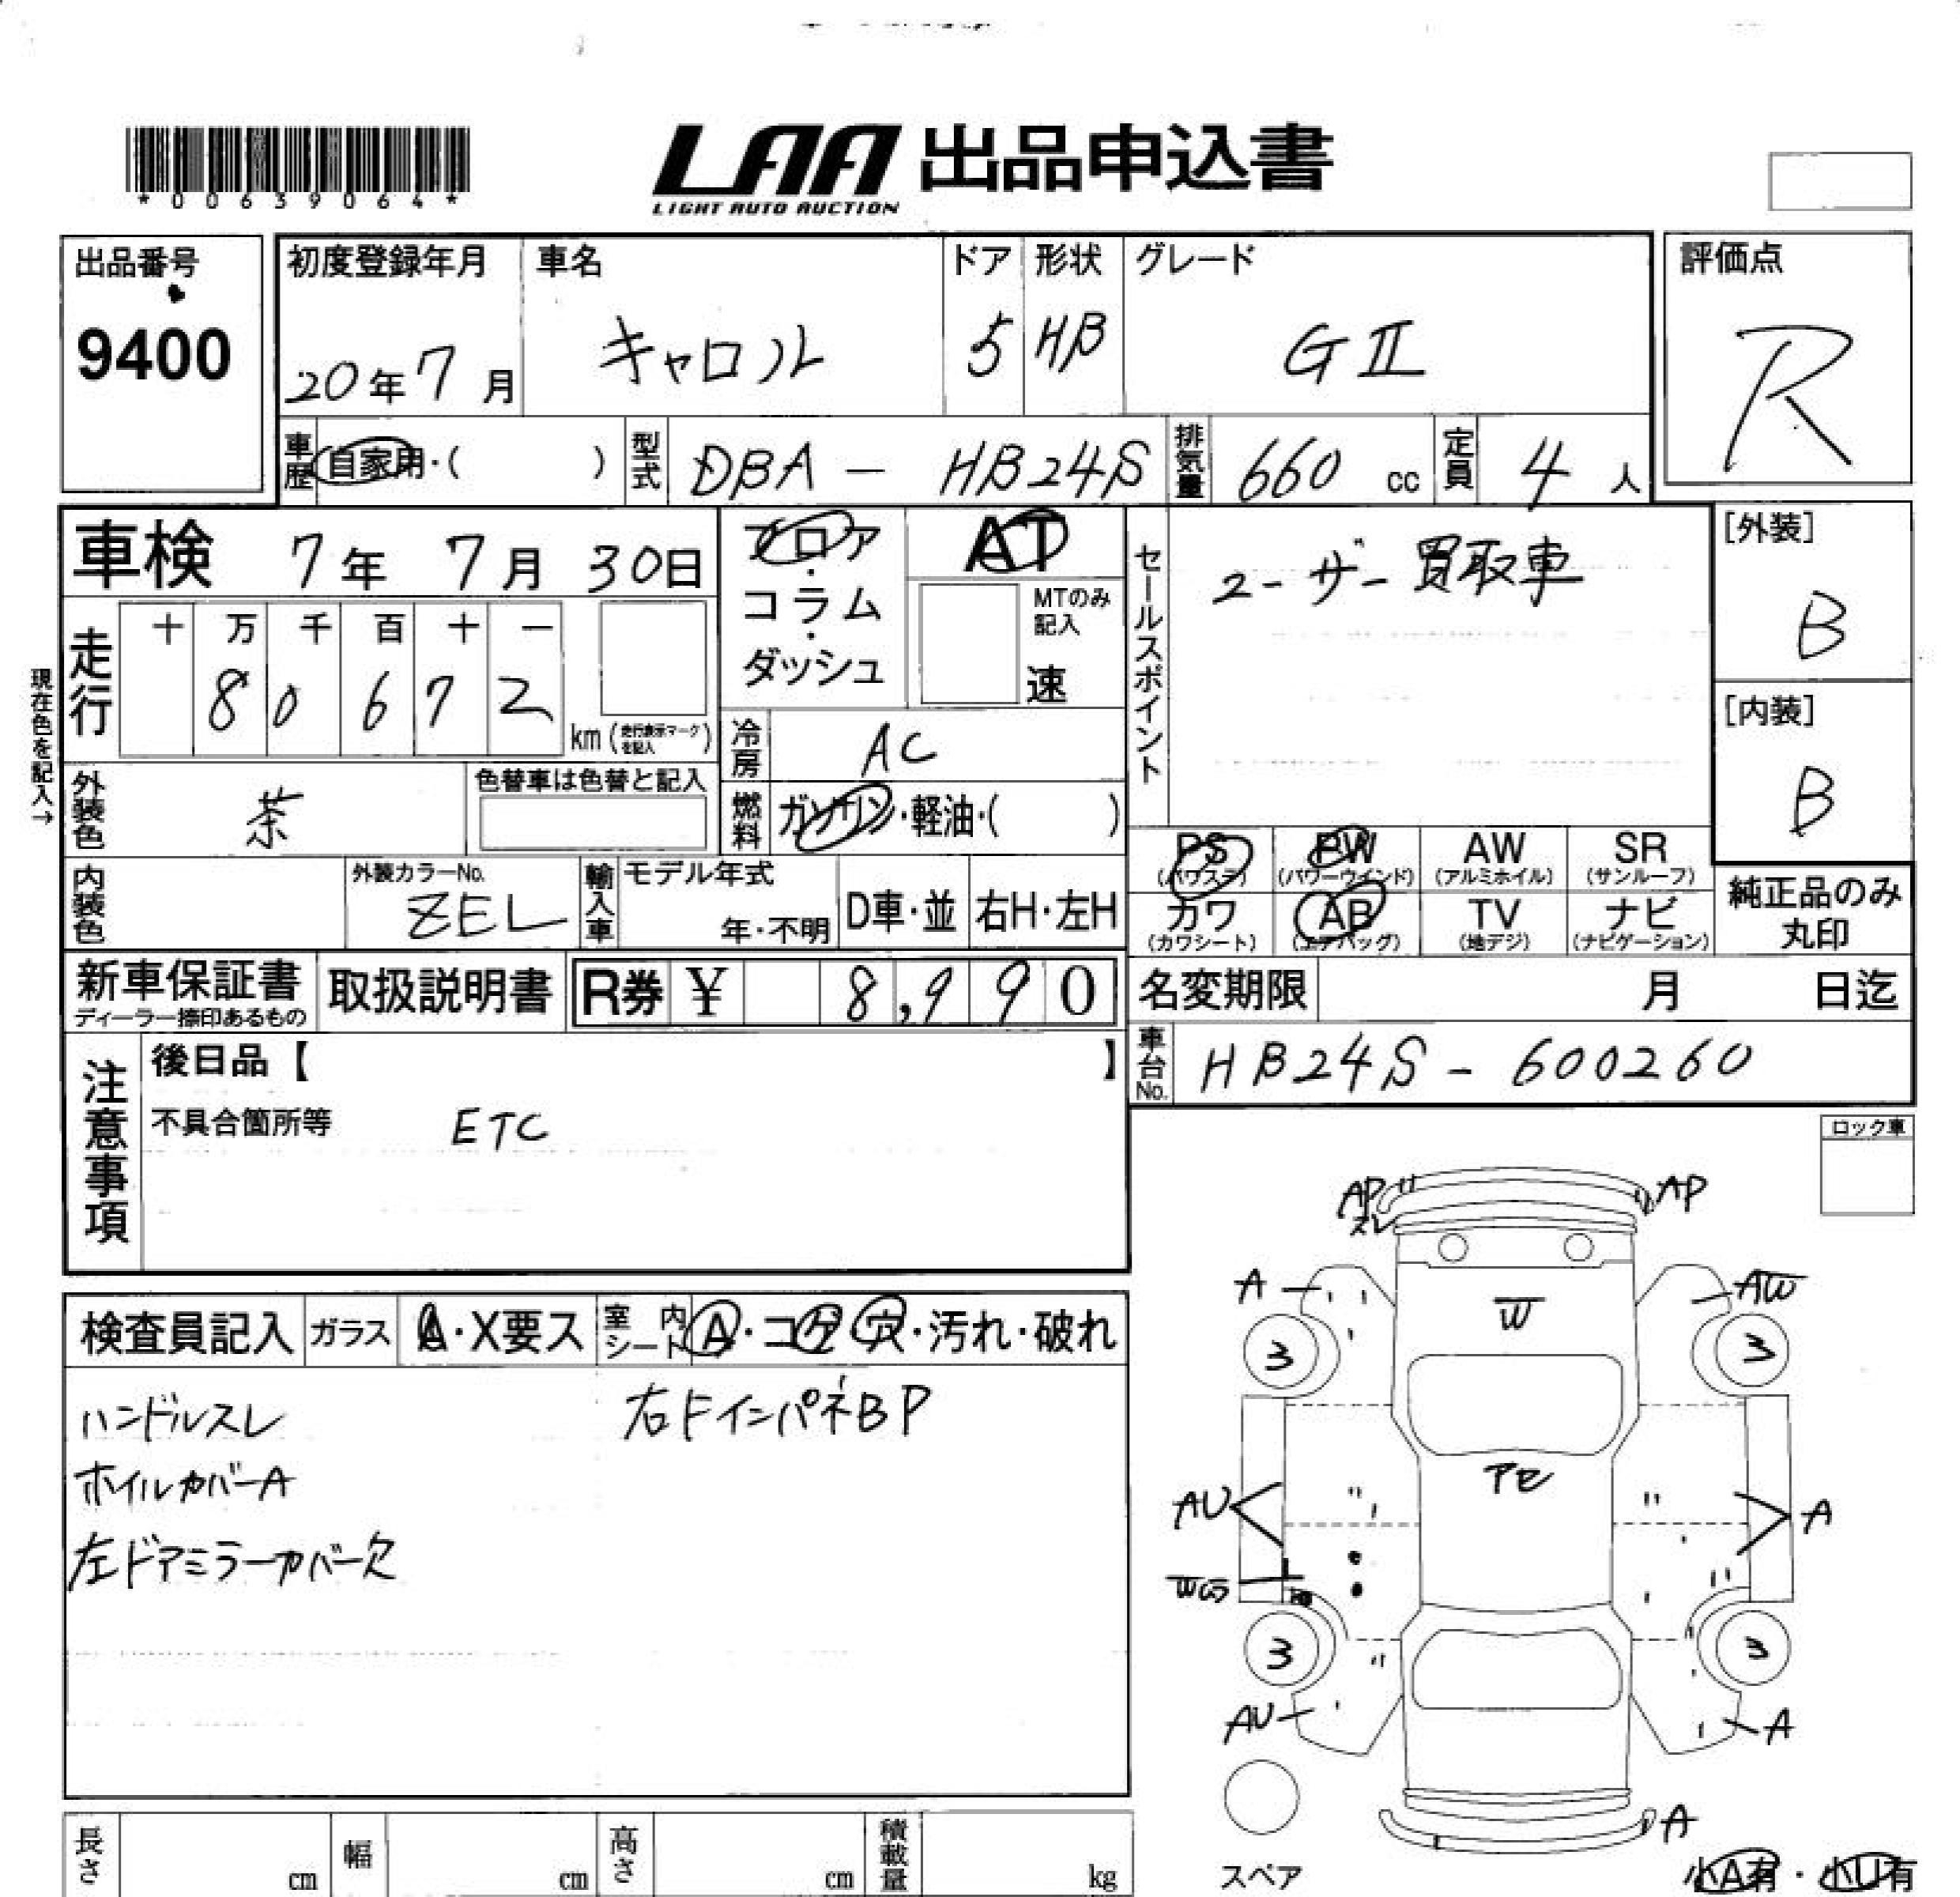 *00639064*
LAA 出品申込書
LIGHT AUTO AUCTION
出品番号
9400
初度登録年月
20年7月
車名
キャロル
ドア
5
形状
HB
グレード
GⅡ
評価点
R
車歴 自家用・( )
型式 DBA - HB24S
排気量 660 cc
定員 4 人
車検 7年 7月 30日
フロア・コラム・ダッシュ
AT
MTのみ記入
速
セールスポイント
ユーザー買取車
[外装]
B
[内装]
B
現在色を記入→
走行
十 万 千 百 十 一
8 0 6 7 2
km (走行表示マークを記入)
冷房 AC
外装色 茶
色替車は色替と記入
燃料 ガソリン・軽油・( )
内装色
外装カラーNo.
ZEL
輸入車
モデル年式
年・不明
D車・並
右H・左H
PS (パワステ)
PW (パワーウインド)
AW (アルミホイル)
SR (サンルーフ)
カワ (カワシート)
AB (エアバッグ)
TV (地デジ)
ナビ (ナビゲーション)
純正品のみ
丸印
新車保証書
ディーラー捺印あるもの
取扱説明書
R券 ¥ 8,990
名変期限 月 日迄
車台No. HB24S - 600260
注意事項
後日品【 】
不具合箇所等 ETC
ロック車
検査員記入
ガラス A・X要ス
室内シート A・コゲ穴・汚れ・破れ
ハンドルスレ
右Fインパネ BP
ホイルカバーA
左ドアミラーカバー欠
AP
スレ
AP
A
AW
W
3
3
アセ
AU
A
3
3
AU
A
A
スペア
小A有・小U有
長さ cm
幅 cm
高さ cm
積載量 kg